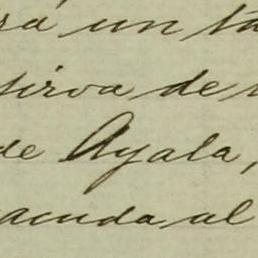 rá un ta
sirva de
de Ayala,
acuda al